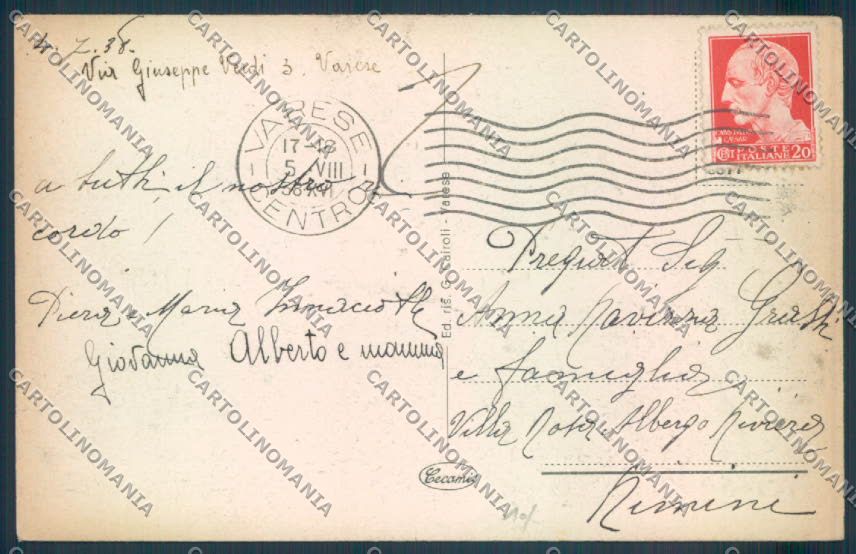 4. 7. 38.
Via Giuseppe Verdi 3. Varese
a tutti il nostro ri
cordo!
Piera e Maria
Giovanna Alberto e mamma
VARESE
17-18
5 VIII
38 XVI
CENTRO
Ed. ris. G. Cairoli - Varese
POSTE
ITALIANE 20
Sig.
Anna
e famiglia
Villa Albergo Riviera
Rimini
Cecami
CARTOLINOMANIA